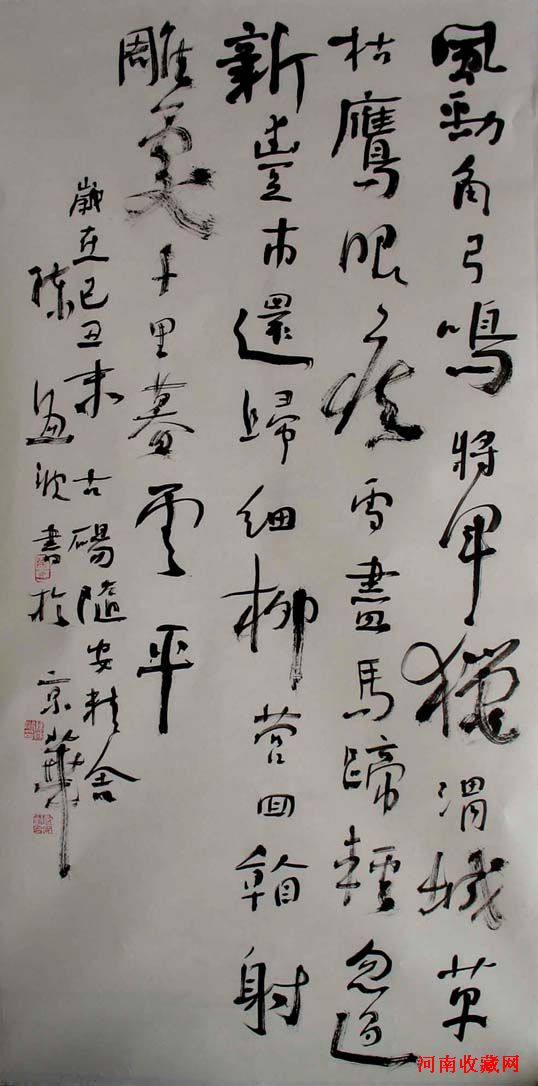 風勁角弓鳴將軍獵渭城草
枯鷹眼疾雪盡馬蹄輕忽過
新豐市還歸細柳營回看射
雕處千里暮雲平
歲在己丑末古碭隨安精舍
陳書於京華
河南收藏网